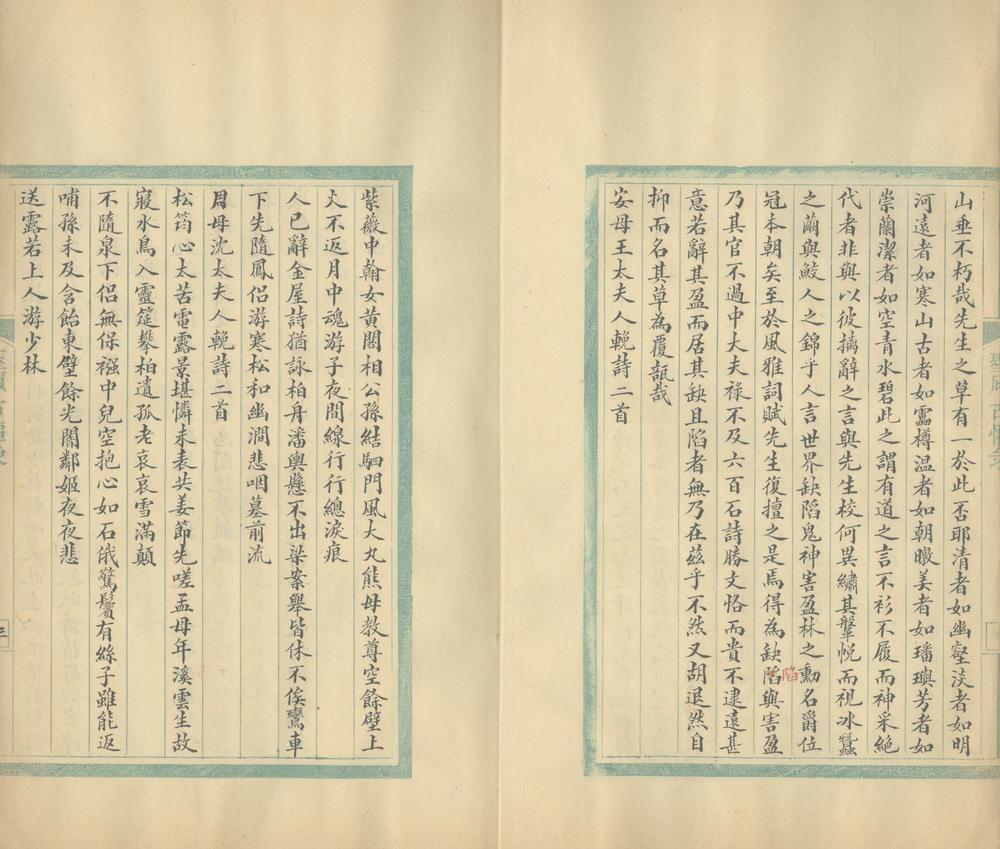 山垂不朽哉先生之草有一於此否耶清者如幽壑淡者如明
河遠者如寒山古者如罍樽温者如朝暾美者如璠璵芳者如
崇蘭潔者如空青水碧此之謂有道之言不衫不履而神采絶
代者非與以彼摛辭之言與先生校何異繡其鞶帨而視冰蠶
之繭與鮫人之錦乎人言世界缺陷鬼神害盈林之勳名爵位
冠本朝矣至於風雅詞賦先生復擅之是焉得為缺陷與害盈
陷
乃其官不過中大夫祿不及六百石詩勝文恪而貴不逮遠甚
意若辭其盈而居其缺且陷者無乃在茲乎不然又胡退然自
抑而名其草為覆瓿哉
安母王太夫人輓詩二首
紫薇中翰女黄閣相公孫結駟門風大丸熊母教尊空餘壁上
火不返月中魂游子夜間線行行總淚痕
人已辭金屋詩猶詠柏舟潘輿懸不出梁案舉皆休不俟鸞車
下先隨鳳侶游寒松和幽澗悲咽墓前流
周母沈太夫人輓詩二首
松筠心太苦電露景堪憐未表共姜節先嗟孟母年溪雲生故
寢水鳥入靈筵攀柏遺孤老哀哀雪滿顛
不隨泉下侶無保襁中兒空抱心如石俄驚鬢有絲子雖能返
哺孫未及含飴東壁餘光闇鄰姬夜夜悲
送露若上人游少林
三